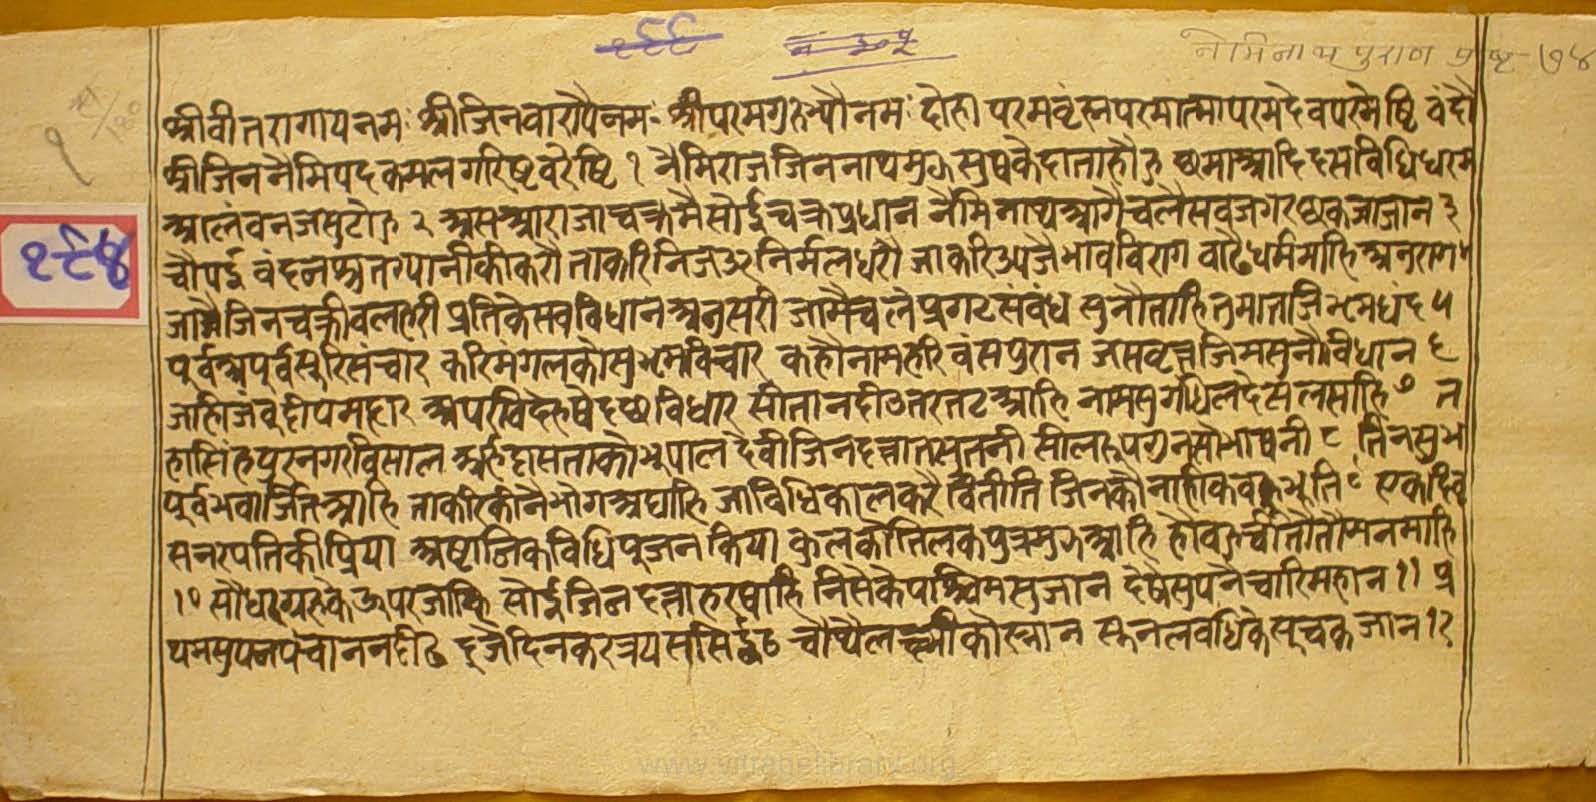 १८८
नं ३०५
नेमिनाथ पुराण पृष्ट - ७४
१
१८४
श्रीवीतरागायनमः श्रीजिनवाणीयैनमः श्रीपरमगुरुभ्यौनमः दोहा परमवृंह्मपरमात्मापरमदेवपरमेष्टि वंदौ
श्रीजिननैमिपदकमलगरिष्टवरेष्टि १ नैमिराजजिननाथमुझसुषकेदाताहौउ छमाआदिदसविधिधरम
आलंवनजसुटोउ २ असआराजाचक्रमैसोईचक्रप्रधान नैमिनाथआगैचलैसवजगरछकजाजान ३
चौपई वंदनश्रुतग्यानीकीकरौ ताकरिनिजउरनिर्मलधरौ जाकरिउपजैभावविराग वाढैधर्ममाहिअनुराग ४
जामैजिनचक्रीवलहरी प्रतिकेसवविधानअनुसरी जामैचलेप्रगटसंवंध सुनौताहितुमाताजिभ्रमधंद ५
पूर्वअपूर्वसूरिसंचार करिमंगलकौसुभ्रमविचार कहौनामहरिवंसपुरान जासवृत्तजिमसुनौविधान ६
जाहिजंवूदीपमहार अपरविदेहषेदछविधार सीतानदीउतरतटआहि नामसुगंधिलदेसलसाहि ७ त
हासिंहपुरनगरविसाल अर्हद्दासताकौभूपाल देवीजिनदत्तातसुतनी सीलरूपगुनसोभाघनी ८ तिनसुभ
पूर्वभवार्जितआहि ताकरिकीनैभोगअघाहि जाविधिकालकरैवितीति जिनकौनाहीकवहूभीति ९ एकदिव
सनरपतिकीप्रिया अष्टाह्निकविधिपूजनकिया कुलकौतिलकपुत्रमुझआहि होवहुचीतौतौमनमाहि
१० सौधग्रहकैऊपरजाहि सोईजिनदत्ताहरषाहि निसिकैपश्चिमसुजान देषेसुपनैचारिमहान ११ प्र
थमसुपनपंचाननदीठ दूजैदिनकरत्रयससिईठ चौथैलक्ष्मीकौस्नान सुतनलवधिकेसूचकजान १२
www.vitragelibrary.org